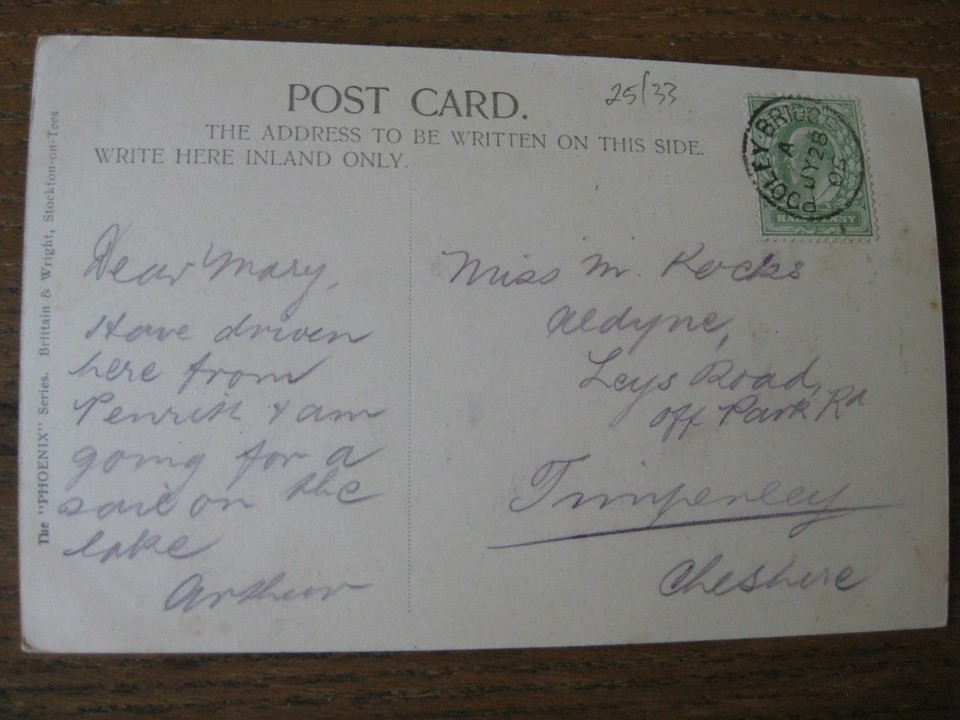 POST CARD.
25/33
THE ADDRESS TO BE WRITTEN ON THIS SIDE.
WRITE HERE INLAND ONLY.
The "PHOENIX" Series. Brittain & Wright, Stockton-on-Tees
POOLEY BRIDGE
A
JY 28
05
HALFPENNY
Dear Mary,
Have driven
here from
Penrith & am
going for a
sail on the
lake
Arthur
Miss M. Kocks
Aldyne,
Leys Road,
off Park Rd
Timperley
Cheshire